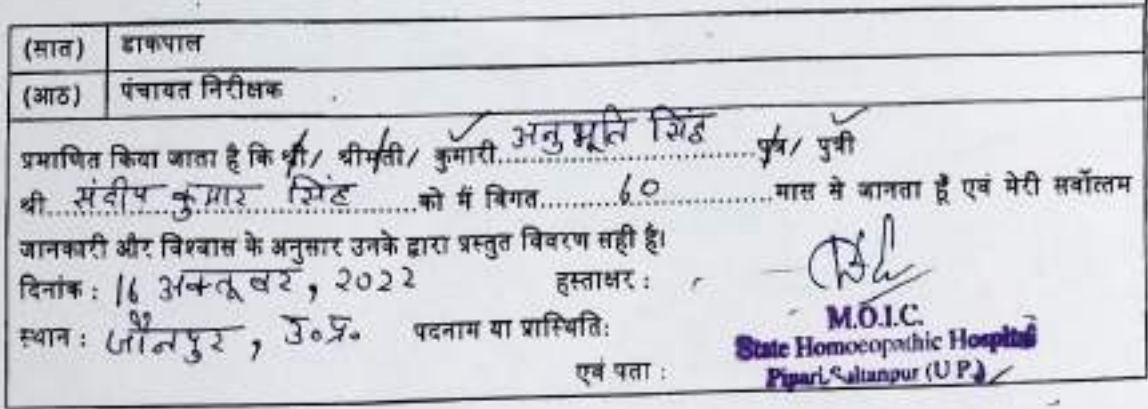 (सात) डाकपाल
(आठ) पंचायत निरीक्षक
प्रमाणित किया जाता है कि श्री/ श्रीमती/ कुमारी अनुभूति सिंह पुत्र/ पुत्री
श्री संदीप कुमार सिंह को मैं विगत 60 मास से जानता हूँ एवं मेरी सर्वोत्तम
जानकारी और विश्वास के अनुसार उनके द्वारा प्रस्तुत विवरण सही है।
दिनांक : 16 अक्तूबर, 2022 हस्ताक्षर :
स्थान : जौनपुर, उ०प्र० पदनाम या प्रास्थिति:
M.O.I.C.
State Homoeopathic Hospital
एवं पता : Pipari, Sultanpur (U P.)